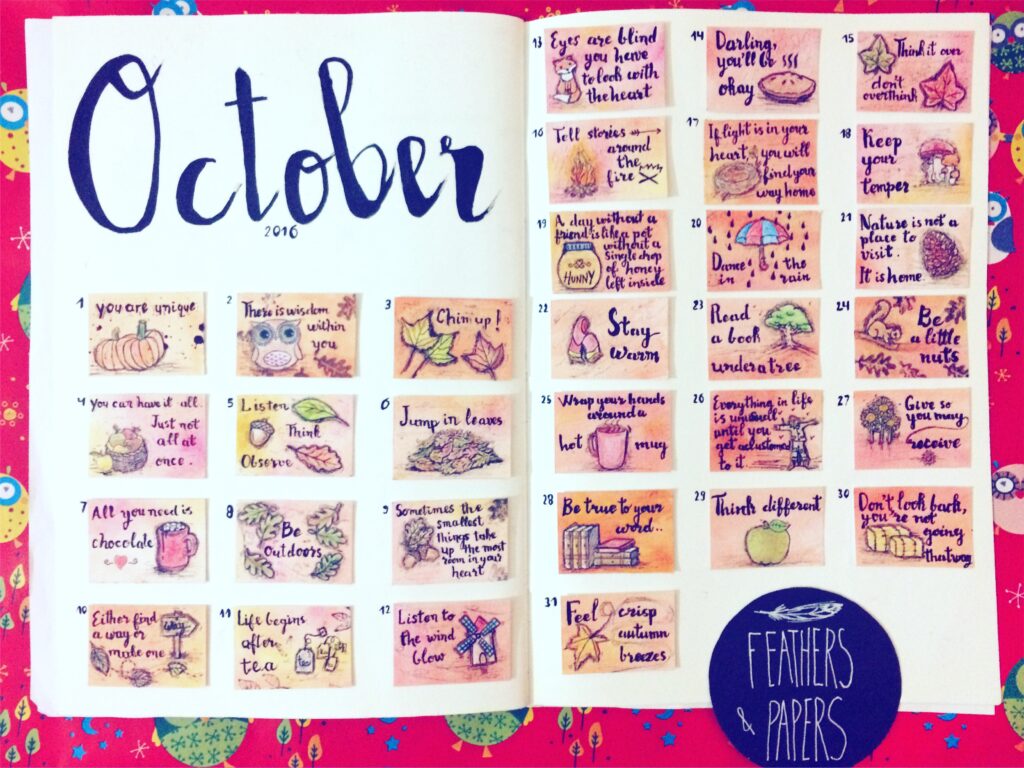 October
2016
1
you are unique
2
There is wisdom
within
you
3
Chin up!
4
you can have it all.
Just not
all at
once.
5
Listen
Think
Observe
6
Jump in leaves
7
All you need is
chocolate
8
Be
Outdoors
9
Sometimes the
smallest
things take
up the most
room in your
heart
10
Either find
a way or
make one
way
11
Life begins
after
tea
tea
12
Listen to
the wind
blow
13
Eyes are blind
you have
to look with
the heart
14
Darling,
you'll be
okay
15
Think it over
don't
overthink
16
Tell stories
around
the
fire
17
If light is in your
heart you will
find your
way home
18
Keep
your
temper
19
A day without a
friend is like a pot
without a
single drop
of honey
left inside
HUNNY
20
Dance the
in rain
21
Nature is not a
place to
visit.
It is home
22
Stay
warm
23
Read
a book
under a tree
24
Be
a little
nuts
25
Wrap your hands
around a
hot mug
26
Everything in life
is unusual
until you
get accustomed
to it
27
Give so
you may
receive
28
Be true to your
word..
29
Think different
30
Don't look back,
you're not
going
that way
31
Feel crisp
autumn
breezes
FEATHERS
& PAPERS